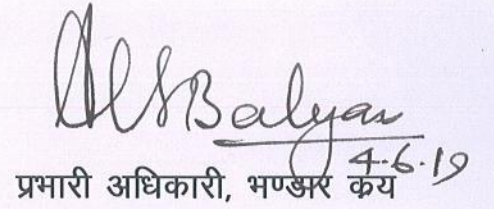 Balyan
4.6.19
प्रभारी अधिकारी, भण्डार क्रय